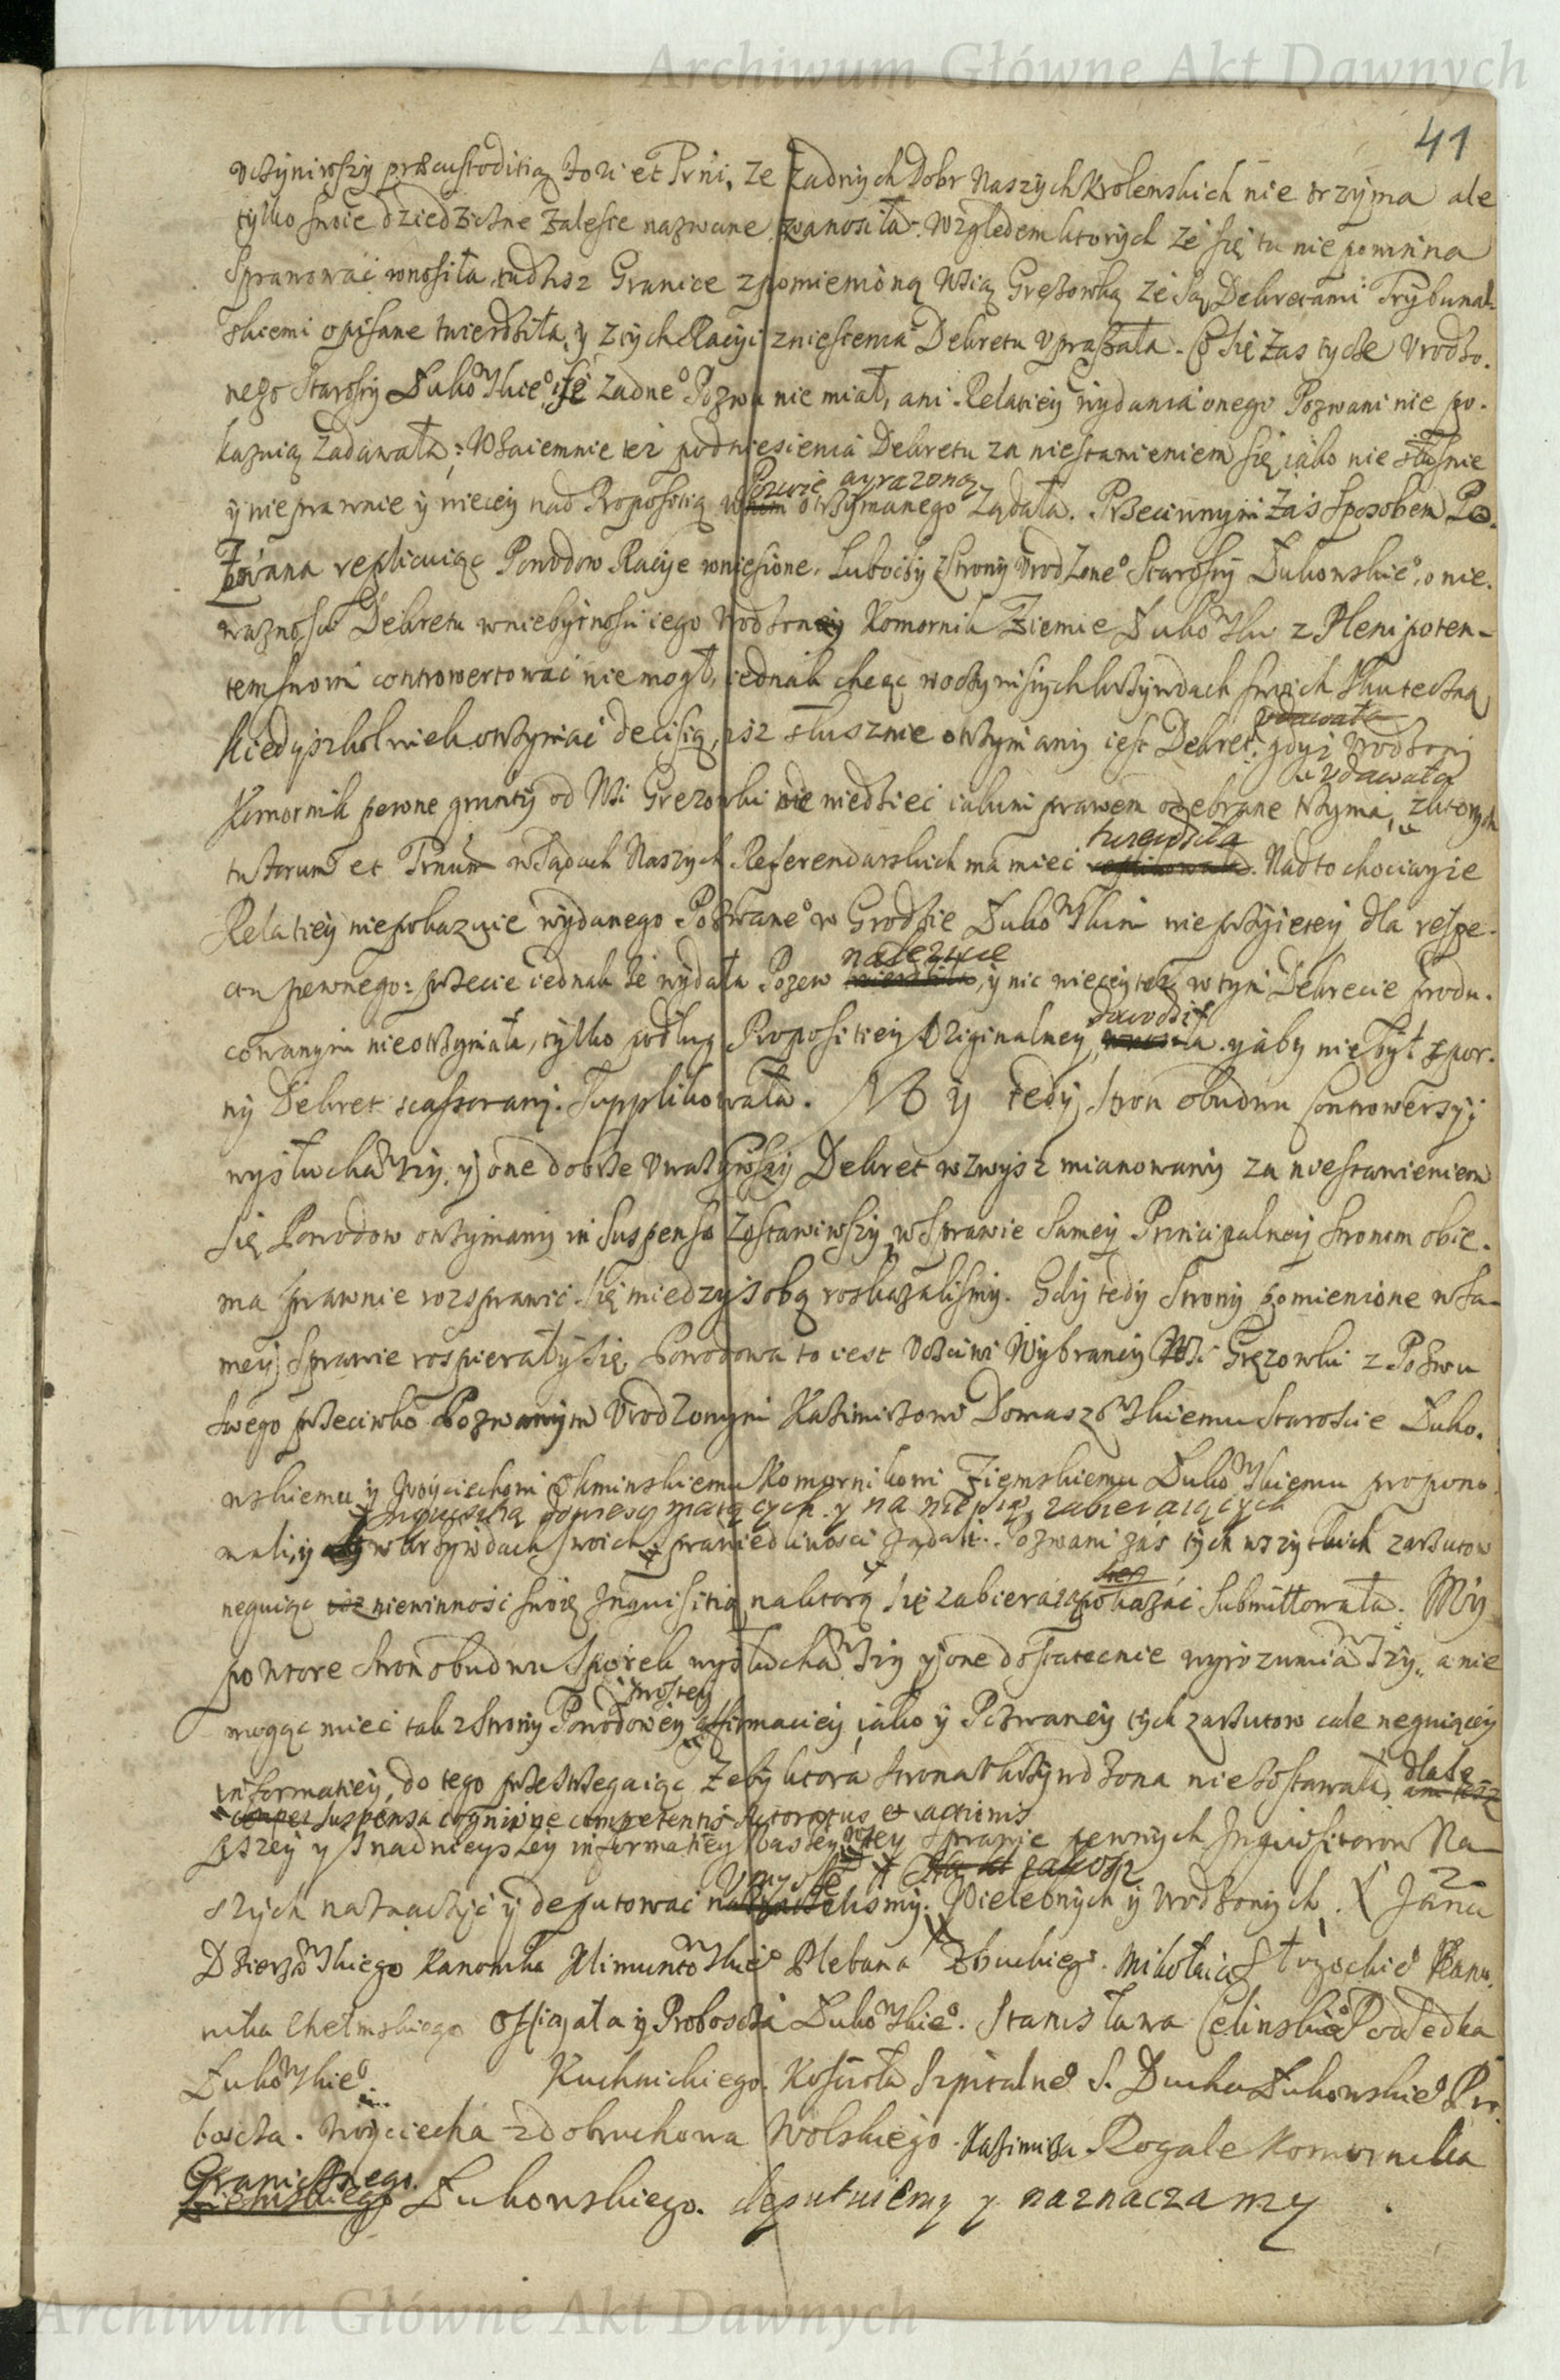 Archiwum Główne Akt Dawnych
41
vczyniwszy præcustoditią Fori et Trni, że żadnych Dobr Naszych Krolewskich nie trzyma ale
tylko swoie dziedziczne Zalesie nazwane wnosiła. Względem ktorych że się tu nie powinna
Sprawować wnosiła, tudzisz Granice z pomienioną Wsią Gręzowką że są Dekretami Trybunal-
skiemi opisane twierdziła, y z tych Racyi zniesienia Dekretu vpraszała. Co się zas tycze Vrodzo-
nego Starosty Łukowskiego, iż żadnego Pozwu nie miał, ani Relatiey wydania onego Pozwani nie po-
kazuią zadawała; Wzaiemnie też podniesienia Dekretu za niestawieniem się iako nie słusznie
Pozwie wyrazoną
y nieprawnie y więcey nad Propositią w otrzymanego żądała. Przeciwnym zaś sposobem Po-
zwana replicuiąc Powodow Racyje wniesione, lubo by z strony Vrodzonego Starosty Łukowskiego, o nie-
waznosci Dekretu w niebytnosci iego Vrodzony Komornik Ziemie Łukowsky z Plenipoten-
tem swoim controwertować nie mogł, iednak chcąc w oczywistych krzywdach swoich skuteczną
vdawała
kiedyszkolwiek otrzymać decisią, isz słusznie otrzymany iest Dekret, gdyż Vrodzony
vdawała
Komornik pewne grunty od Wsi Gręzowki nie wiedzieć iakim prawem odebrane trzyma, z ktorych
twierdziła
tu Forum et Trnum w Sądach Naszych Referendarskich ma mieć replikowała. Nad to chociayże
Relatiey nie pokazuie wydanego Pozwanego w Grodzie Łukowskim nie przyiętey dla respe-
należycie
ctu pewnego: przecie iednak że wydała Pozew twierdziła, y nic więcey też w tym Dekrecie produ-
dowodził
cowanym nie otrzymała, tylko podług Propositiey Originalney, wnosiła. y aby nie był spor-
ny Dekret scassowany. Supplikowała. My tedy stron obudwu controwersyi
wysłuchawszy, y one dobrze vważywszy Dekret wzwysz mianowany za niestawieniem
się Powodow otrzymany in suspenso zostawiwszy, w sprawie samey Principalney stronom obie-
ma prawnie rozprawić się miedzy sobą roskazalismy. Gdy tedy Strony pomienione w sa-
mey sprawie rospierały się, Powodowa to iest Vczciwi Wybrancy Wsi Gręzowki z Pozwu
swego przeciwko Pozwanym Vrodzonym Kazimierzowi Domaszowskiemu Staroscie Łuko-
wskiemu y Woyciechowi Ziemskiemu Łukowskiemu propono-
wali, y w krzywdach swoich sprawiedliwosci żądali. Pozwani zás tych wszytkich zarzutow
neguiąc niewinność swoię Inquisitią, na ktorą się zabieráią pokazáć submittowała. My
powtore stron obudwu sporek wysłuchawszy y one dostatecznie wyrozumiawszy, a nie
prostey
mogąc mieć tak z strony Powodowey affirmaciey, iako y Pozwaney tych zarzutow cale neguiącey
informatiey, do tego przestrzegaiąc żeby ktora strona vkrzywdzona nie zostawała, dla le-
suspensa cognitione competentis Actoratus et actionis
pszey y snadnieyszey informatiey w tey sprawie pewnych Inquisitorow Na-
szych naznaczyć y deputować vmyslilismy. Wielebnych y Vrodzonych. X Jana
Dzierzowskiego Kanonika Klimuntowskiego Plebana Zbuckiego. Mikołaia Strzockiego Kano-
nika Chełmskiego Officiała y Proboscza Łukowskiego. Stanisława Celinskiego Podsędka
Łukowskiego Kuchnickiego. Koscioła Szpitalnego S. Ducha Łukowskiego Pro-
boscza. Woyciecha z Dobruchowa Wolskiego. Kazimierza Rogale Komornika
Granicznego
Ziemskiego Łukowskiego. deputuiemy y naznaczamy.
Archiwum Główne Akt Dawnych